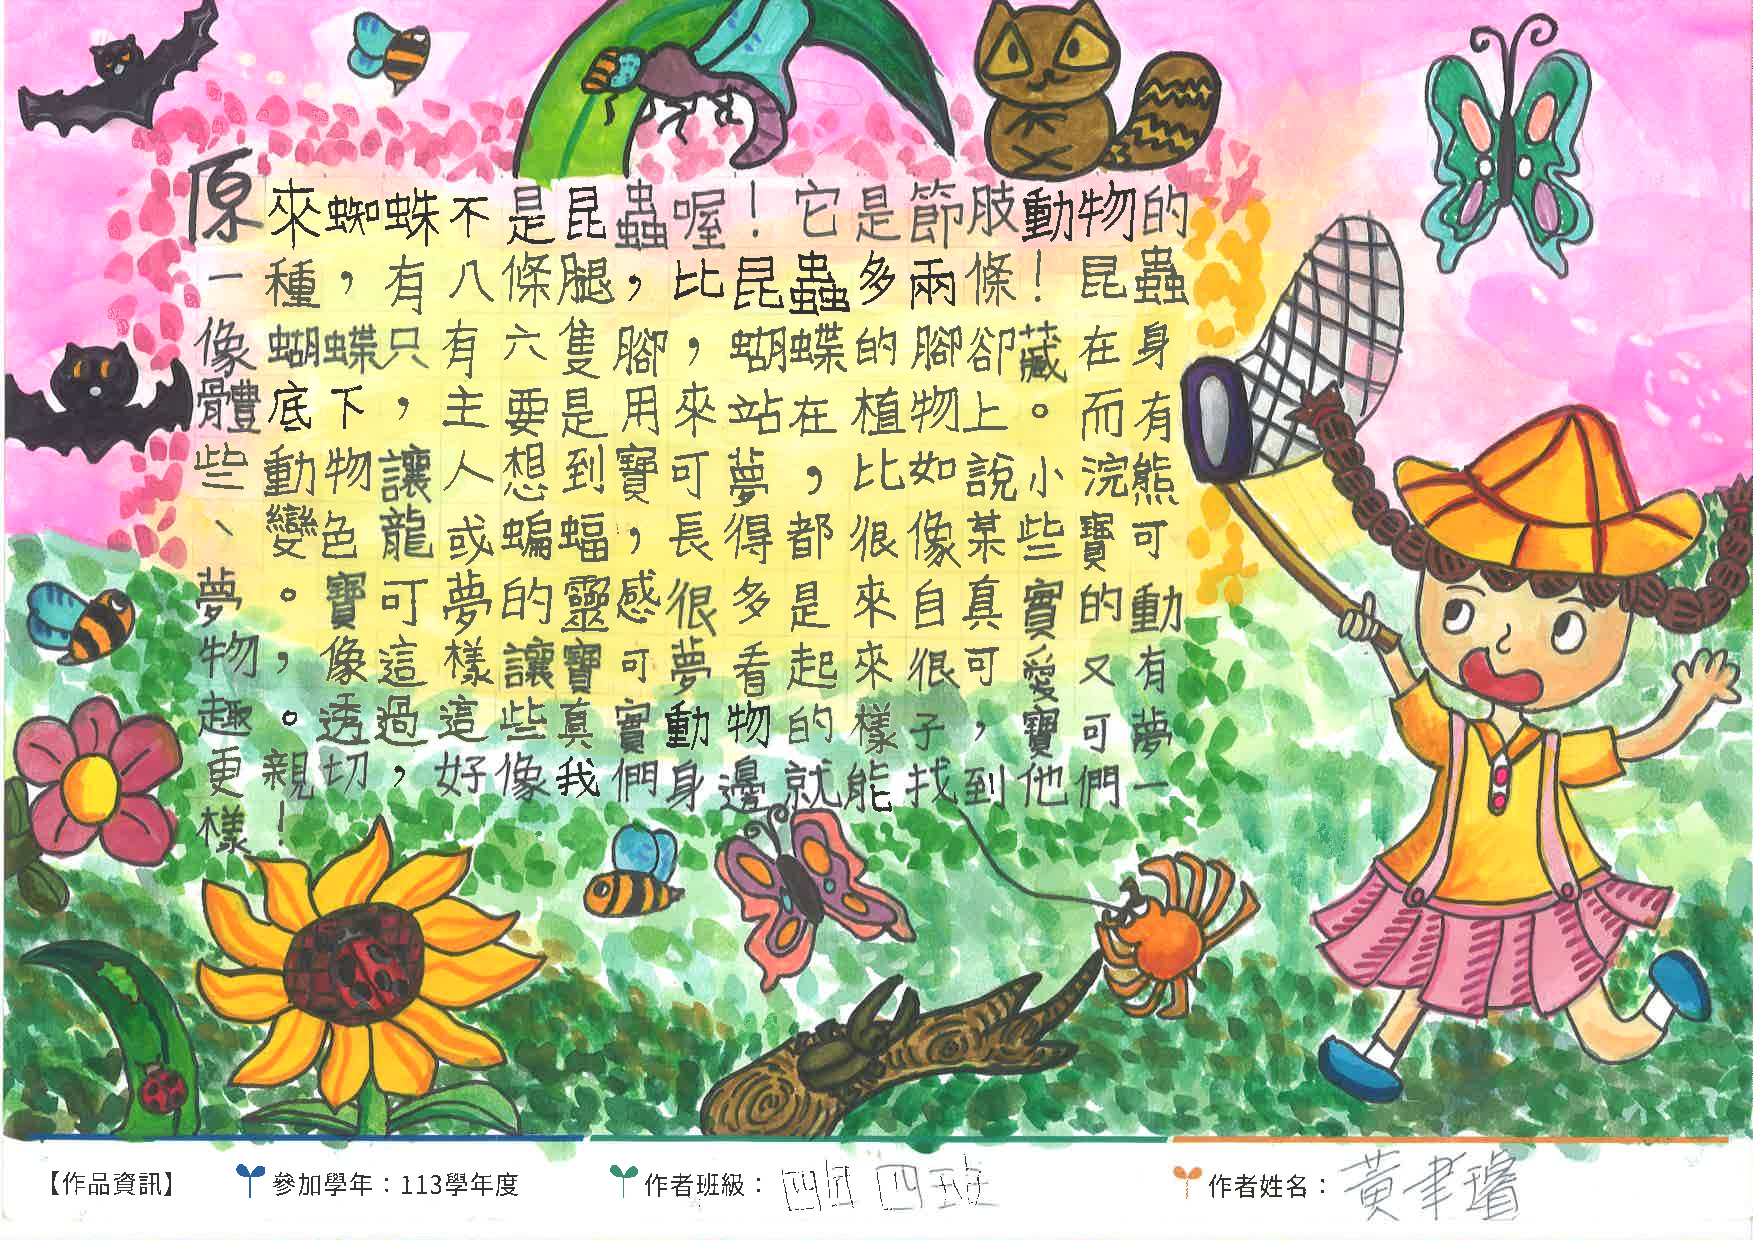 原來蜘蛛不是昆蟲喔！它是節肢動物的
一種，有八條腿，比昆蟲多兩條！昆蟲
像蝴蝶只有六隻腳，蝴蝶的腳卻藏在身
體底下，主要是用來站在植物上。而有
些動物讓人想到寶可夢，比如說小浣熊
、變色龍或蝙蝠，長得都很像某些寶可
夢。寶可夢的靈感很多是來自真實的動
物，像這樣讓寶可夢看起來很可愛又有
趣。透過這些真實動物的樣子，寶可夢
更親切，好像我們身邊就能找到他們一
樣！
【作品資訊】 參加學年：113學年度 作者班級：四年四班 作者姓名：黃聿璿